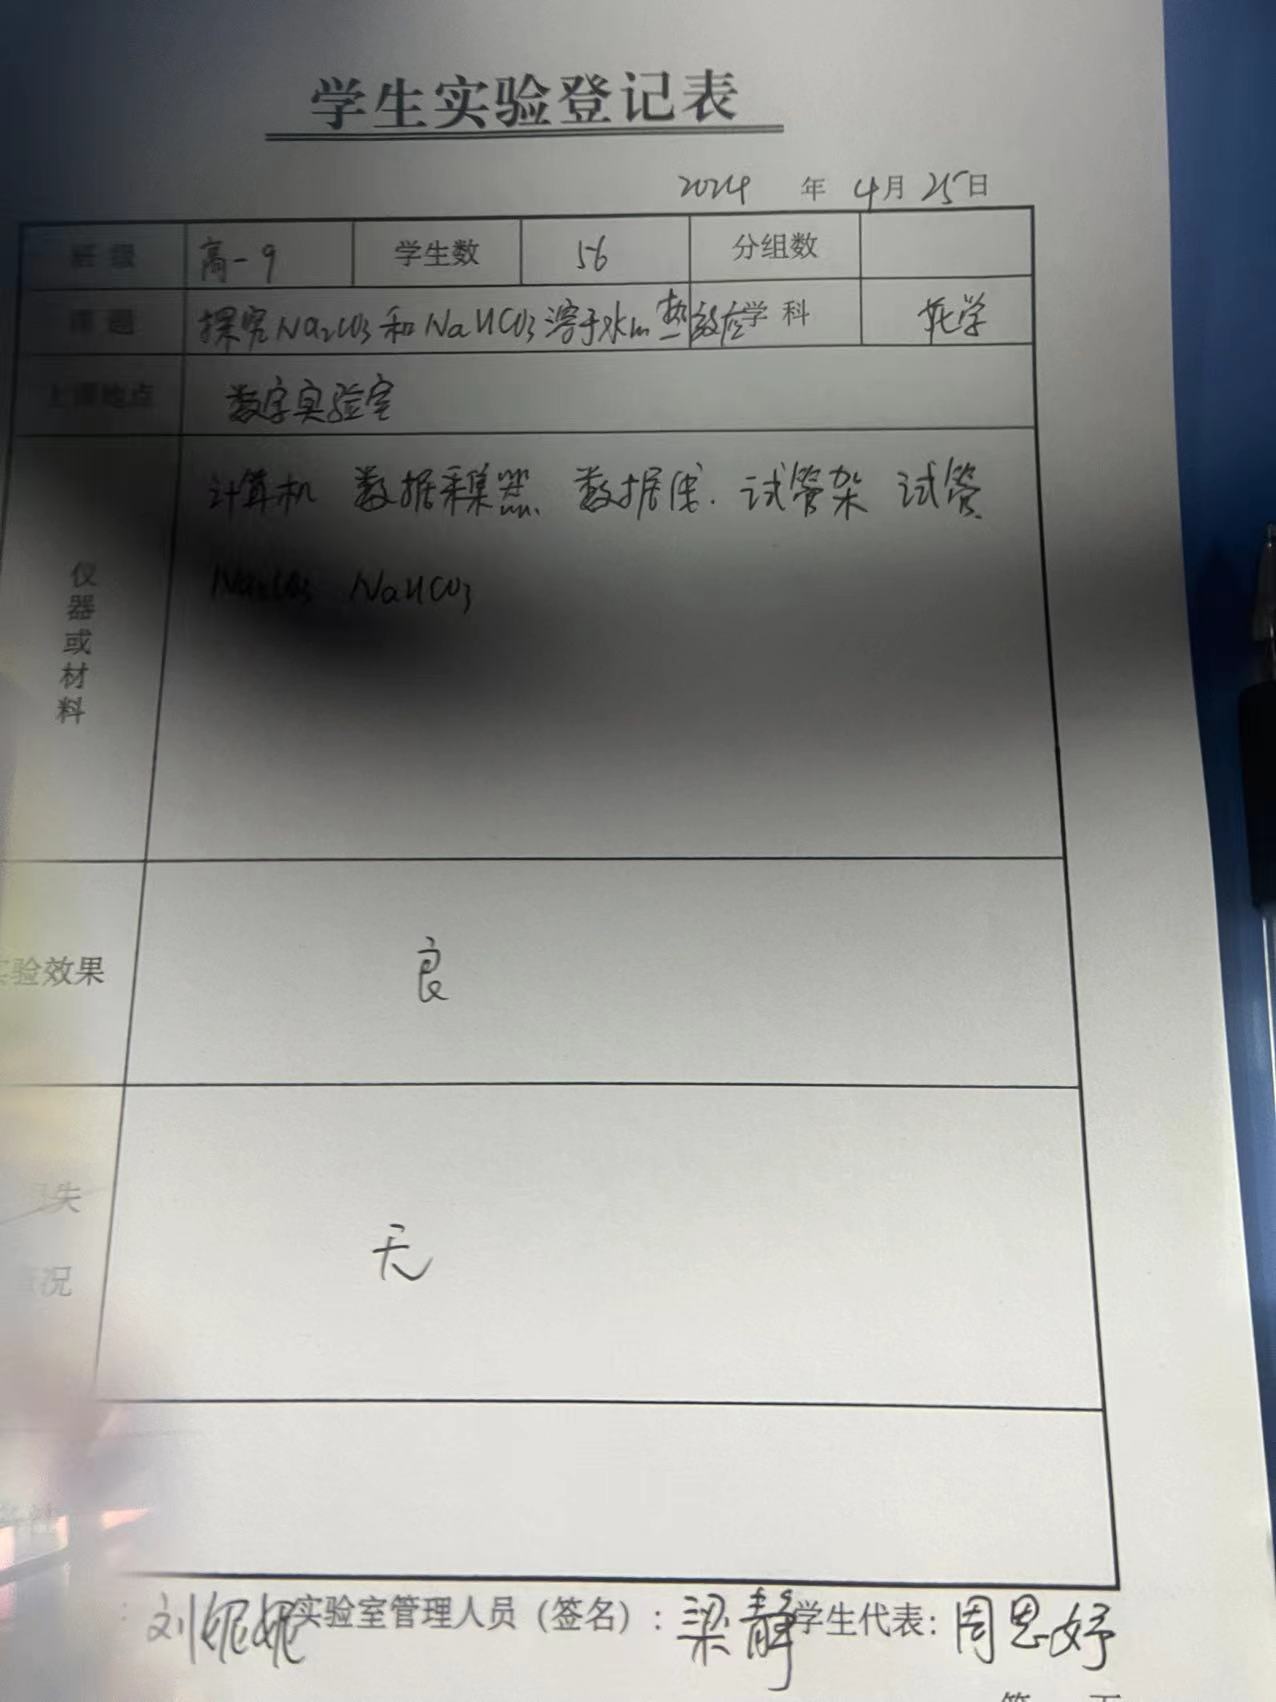 学生实验登记表
2024 年 4月25日
班级 高一9 学生数 56 分组数
课题 探究Na2CO3和NaHCO3溶于水的热效应 学科 化学
上课地点 数字实验室
仪器或材料 计算机 数据采集器、数据线. 试管架 试管、
Na2CO3 NaHCO3
实验效果 良
失 无
况
: 刘妮妮 实验室管理人员（签名）: 梁静 学生代表: 周思妤